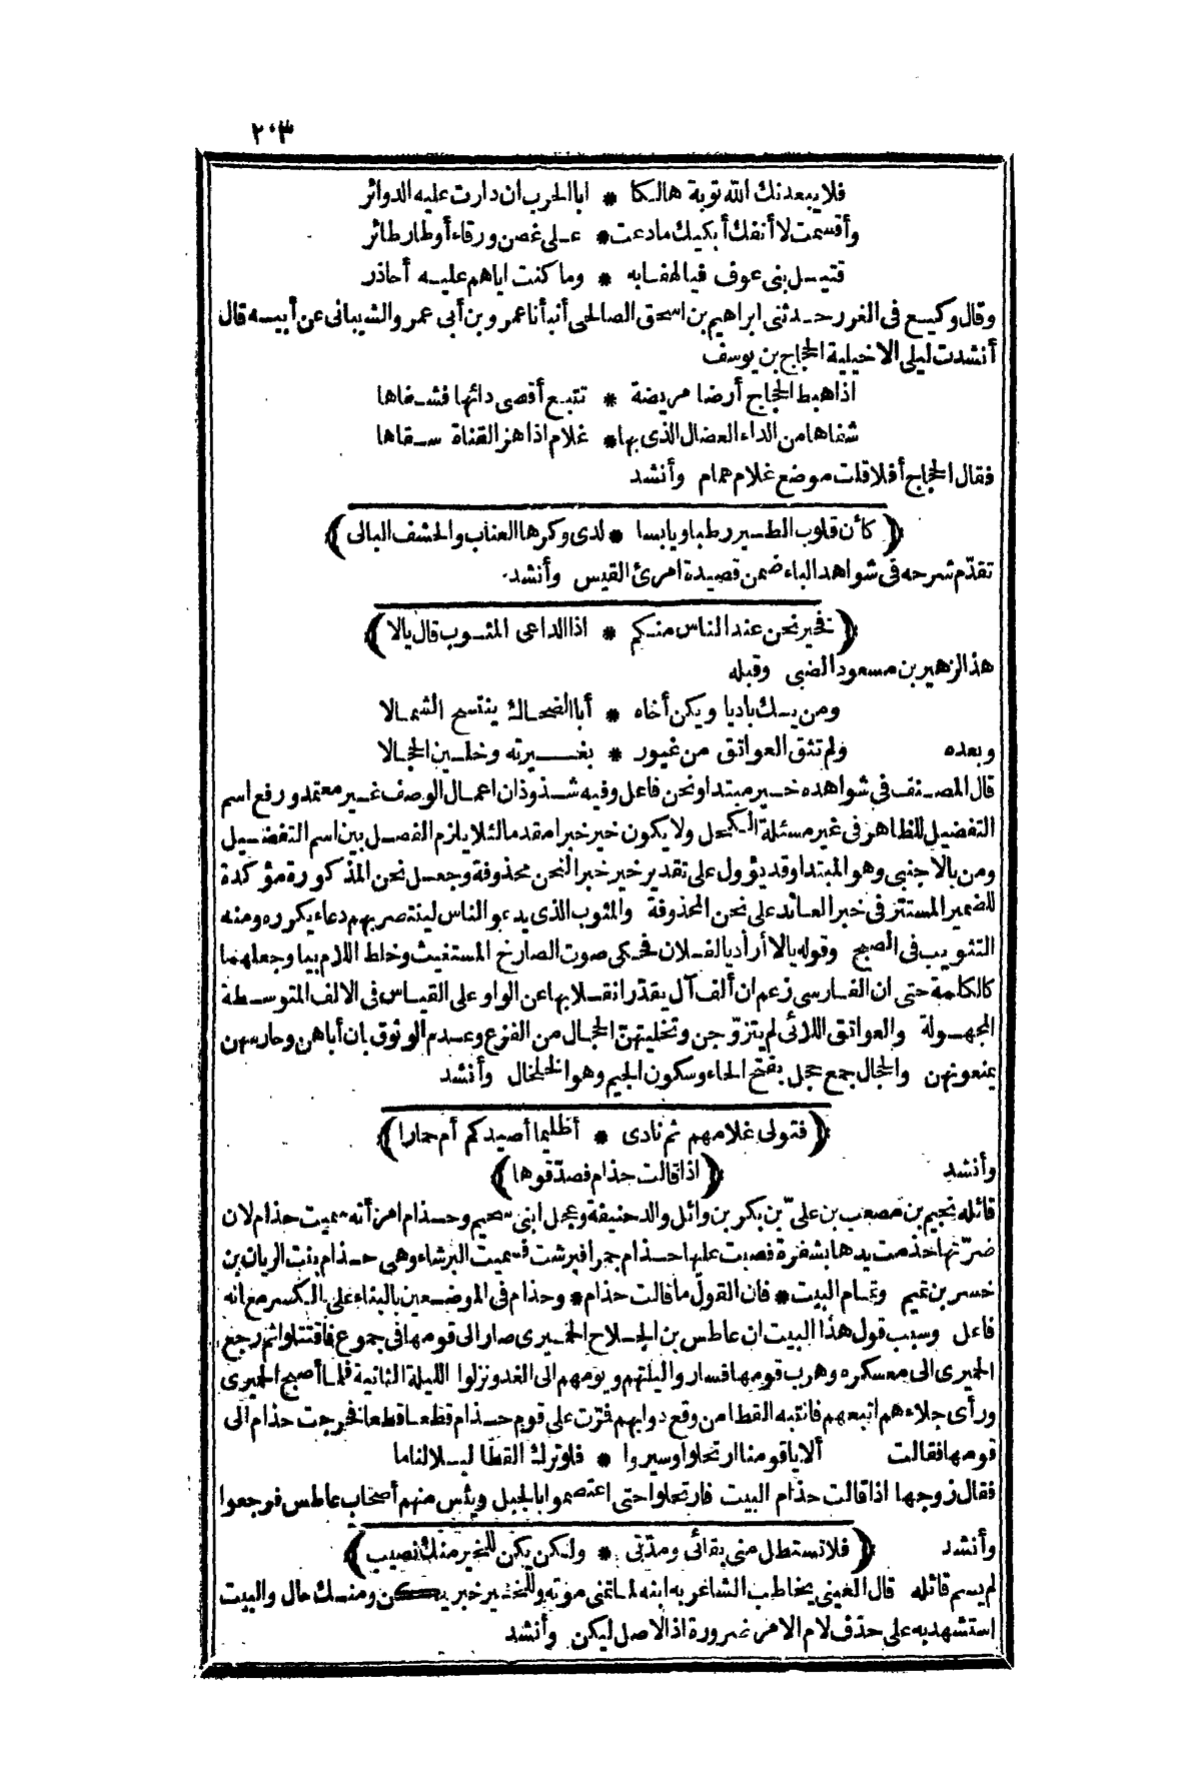 ٢٠٣
فلا يبعدنك الله توبة هالكا * ابا الحرب ان دارت عليه الدوائر
وأقسمت لا أنفك أبكيك ما دعت * على غصن ورقاء أو طار طائر
قتيل بنى عوف فيا لهفا به * وما كنت اياهم عليه أحاذر
وقال وكيع فى الغرر حدثنى ابراهيم بن اسحق الصالحى أنبأنا عمرو بن أبى عمرو الشيبانى عن أبيه قال
أنشدت ليلى الاخيلية الحجاج بن يوسف
اذا هبط الحجاج أرضا مريضة * تتبع أقصى دائها فشفاها
شفاها من الداء العضال الذى بها * غلام اذا هز القناة سقاها
فقال الحجاج أفلا قلت موضع غلام همام وأنشد
(كأن قلوب الطير رطبا ويابسا * لدى وكرها العناب والحشف البالى)
تقدّم شرحه فى شواهد الباء ضمن قصيدة امرئ القيس وأنشد
(فخير نحن عند الناس منكم * اذا الداعى المثوب قال يالا)
هذا لزهير بن مسعود الضبى وقبله
ومن يك باديا ويكن أخاه * أبا الضحاك ينتسج الشمالا
وبعده ولم تثق العواتق من غيور * بغيرته وخلين الحجالا
قال المصنف فى شواهده خير مبتدا ونحن فاعل وفيه شذوذان اعمال الوصف غير معتمد ورفع اسم
التفضيل للظاهر فى غير مسئلة الكحل ولا يكون خير خبرا مقدما لئلا يلزم الفصل بين اسم التفضيل
ومن بالاجنبى وهو المبتدا وقد يؤول على تقدير خير خبر النحن محذوفة وجعل نحن المذكورة مؤكدة
للضمير المستتر فى خبر العائد على نحن المحذوفة والمثوب الذى يدعو الناس لينتصر بهم دعاء يكرره ومنه
التثويب فى الصبح وقوله يالا أراد يالفلان فحكى صوت الصارخ المستغيث وخلط اللام بيا وجعلهما
كالكلمة حتى ان الفارسى زعم ان ألف آل يقدر انقلابها عن الواو على القياس فى الالف المتوسطة
المجهولة والعواتق اللائى لم يتزوّجن وتخليتهنّ الحجال من الفزع وعدم الوثوق بان أباهن وحارسهن
يمنعونهن والحجال جمع حجل بفتح الحاء وسكون الجيم وهو الخلخال وأنشد
(فتولى غلامهم ثم نادى * أظليما أصيدكم أم حمارا)
وأنشد (اذا قالت حذام فصدّقوها)
قائله لجيم بن مصعب بن علىّ بن بكر بن وائل والد حنيفة وعجل ابنى لجيم وحذام امرأته سميت حذام لان
ضرّتها حذمت يدها بشفرة فصبت عليها حذام جمرا فبرشت فسميت البرشاء وهى حذام بنت الريان بن
خسر بن تميم وتمام البيت * فان القول ما قالت حذام * وحذام فى الموضعين بالبناء على الكسر مع انه
فاعل وسبب قول هذا البيت ان عاطس بن الجلاح الحميرى صار الى قومها فى جموع فاقتتلوا ثم رجع
الحميرى الى معسكره وهرب قومها فساروا ليلتهم ويومهم الى الغد ونزلوا الليلة الثانية فلما أصبح الحميرى
ورأى جلاءهم اتبعهم فانتبه القطا من وقع دوابهم فمرّت على قوم حذام قطعا قطعا فخرجت حذام الى
قومها فقالت ألا ياقومنا ارتحلوا وسيروا * فلو ترك القطا ليلا لناما
فقال زوجها اذا قالت حذام البيت فارتحلوا حتى اعتصموا بالجبل ويئس منهم أصحاب عاطس فرجعوا
وأنشد (فلا تستطل منى بقائى ومدّتى * ولكن يكن للخير منك نصيب)
لم يسم قائله قال العينى يخاطب الشاعر به ابنه لما تمنى موته وللخير خبر يكن ومنك حال والبيت
استشهد به على حذف لام الامر ضرورة اذ الاصل ليكن وأنشد